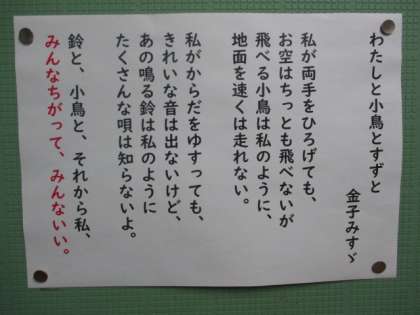 わたしと小鳥とすずと
金子みすゞ
私が両手をひろげても、
お空はちっとも飛べないが
飛べる小鳥は私のように、
地面を速くは走れない。
私がからだをゆすっても、
きれいな音は出ないけど、
あの鳴る鈴は私のように
たくさんな唄は知らないよ。
鈴と、小鳥と、それから私、
みんなちがって、みんないい。